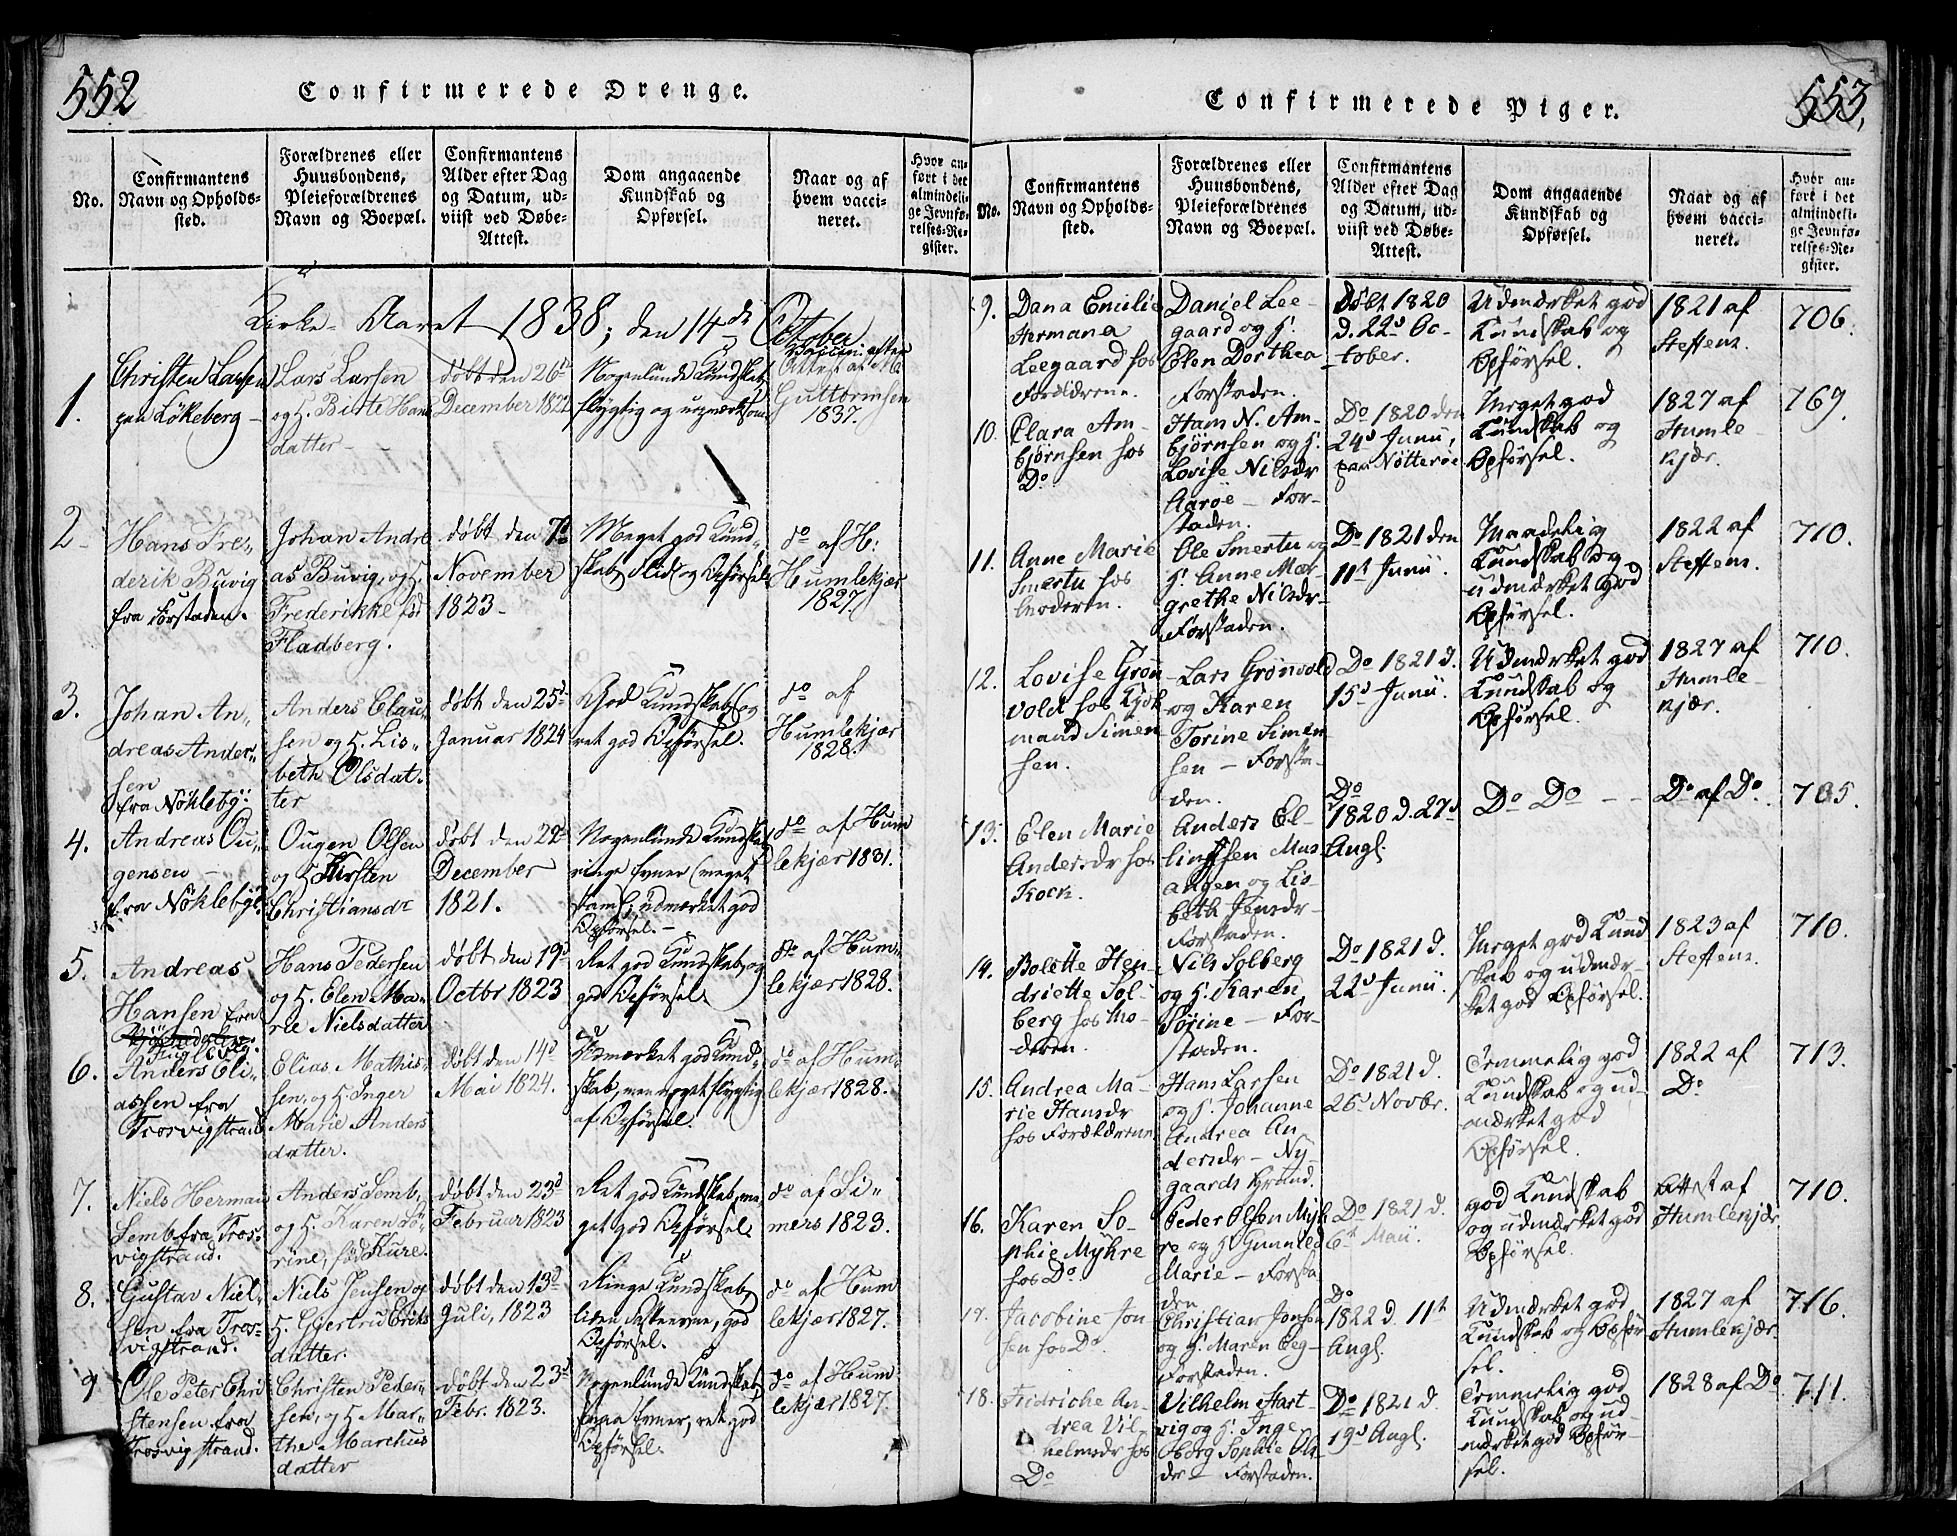 552
Confirmerede Drenge.
No.
Confirmantens
Navn og Opholds-
sted.
Forældrenes eller
Huusbondens,
Pleieforældrenes
Navn og Boepæl.
Confirmantens
Alder efter Dag
og Datum, ud-
viist ved Døbe-
Attest.
Dom angaaende
Kundskab og
Opførsel.
Naar og af
hvem vacci-
neret.
Hvor an-
ført i det
almindeli-
ge Jevnfø-
relses-Re-
gister.
Kirke-Aaret 1838, den 14de October
1.
Christen Larsen
paa Lökeberg -
Lars Larsen
og H. Birte Hans
datter -
döbt den 26d
December 1822
Nogenlunde Kundskab,
flygtig og uopmærksom
Vaccin: efter
Attest af
Guttormsen
1837.
2
Hans Fre-
derik Buvig
fra Forstaden.
Johan Andre
as Buvig, og H.
Frederikke fød
Fladberg.
døbt den 7d
November
1823 -
Meget god Kund-
skab, Flid og Opførsel
do af H:
Humlekjær
1827
3.
Johan An-
dreas Ander-
sen
fra Nöklebÿ.
Anders Clau-
sen og H. Lis-
beth Olsdat-
ter
døbt den 25d
Januar 1824
God Kundskab og
ret god Opførsel.
do af
Humlekjær
1828.
4.
Andreas Ou-
gensen -
fra Nöklebÿe.
Ougen Olsen
og H Kirsten
Christiansdr
döbt den 22d
December
1821.
Nogenlunde Kundskab,
ringe Evner (meget
), udmærket god
Opførsel. -
do af Hum
lekjær 1831.
5.
Andreas
Hansen fra
Hans Pedersen
og H. Elen Ma-
rie Nielsdatter
døbt den 19d
Octbr 1823
Ret god Kundskab og
god Opførsel.
do af Hum-
lekjær 1828.
6.
Anders Eli-
assen fra
Trosvigstrand
Elias Mathis-
sen, og H. Inger
Marie Anders
datter.
døbt den 14d
Mai 1824.
Udmærket god Kund-
skab, men noget flygtig
af Opførsel.
do af Hum-
lekjær 1828.
7.
Niels Herman
Semb fra Tros-
vigstrand.
Anders Semb,
og H. Karen So-
rine, fød Kure.
döbt den 23d
Februar 1823
Ret god Kundskab, me-
get god Opførsel.
do af Si-
mers 1823.
8.
Gustav Niel-
sen fra Tros-
vigstrand.
Niels Jensen og
H. Gjertru Eriks
datter.
döbt den 13d
Juli, 1823
Ringe Kundskab,
liden Læseevne, god
Opførsel.
do af Hum
lekjær 1827.
9
Ole Peter Chri
stensen fra
Trosvigstrand.
Christen Peder-
sen, og H Mar-
the Marchus
datter
döbt den 23d
Febr. 1823.
Nogenlunde Kundskab,
smaa Evner, ret god
Opførsel.
do af Hum
lekjær 1827.
553.
Confirmerede Piger.
No.
Confirmantens
Navn og Opholds-
sted.
Forældrenes eller
Huusbondens,
Pleieforældrenes
Navn og Boepæl.
Confirmantens
Alder efter Dag
og Datum, ud-
viist ved Døbe-
Attest.
Dom angaaende
Kundskab og
Opførsel.
Naar og af
hvem vacci-
neret.
Hvor an-
ført i det
almindeli-
ge Jevnfø-
relses-Re-
gister.
9.
Dana Emilie
Hermana
Leegaard hos
Forældrene.
Daniel Lee-
gaard og H.
Elen Dorthea
Forstaden.
Døbt 1820
d. 22d Oc-
tober.
Udmærket god
Kundskab og
Opførsel.
1821 af
Steffens.
706.
10.
Clara Am-
bjørnsen hos
Do
Hans N. Am-
bjørnsen og H.
Lovise Nilsdr
Aarøe - For-
staden.
Do 1820 den
24d Junii,
paa Nötterøe
Meget god
Kundskab og
Opførsel.
1827 af
Humle
kjær.
769.
11.
Anne Marie
Smertu hos
Moderen.
Ole Smertu og
H. Anne Mar-
grethe Nilsdr-
Forstaden.
Do 1821 den
11t Junii.
Maadelig
Kundskab og
udmærket god
Opførsel.
1822 af
Steffens.
710.
12.
Lovise Grøn
vold hos Kjøb
mand Simen-
sen.
Lars Grønvold
og Karen
Torine Simen
sen - Forsta-
den.
Do 1821 d.
15d Junii.
Udmærket god
Kundskab og
Opførsel.
1827 af
Humle
kjær.
710.
13.
Elen Marie
Andersdr hos
Kock.
Anders El-
lingsen Mus
angen og Lis-
beth Jensdr-
Forstaden.
Do
1820 d. 27d
Augl
Do Do - -
Do af Do.
705.
14.
Bolette Hen-
driette Sol-
berg hos Mo-
deren.
Nils Solberg
og H. Karen
Sörine - For-
staden.
Do 1821 d.
22d Junii.
Meget god Kund
skab og udmær-
ket god Opførsel.
1823 af
Steffens.
710.
15.
Andrea Ma-
rie Hansdr
hos Forældrene
Hans Larsen
og H. Johanne
Andrea An-
dersdr - Ny-
gaards Grund.
Do 1821 d.
26d Novbr.
Temmelig god
Kundskab og ud-
mærket god
Opførsel.
1822 af
Do
713.
16.
Karen So-
phie Myhre
hos Do
Peder Olsen Myh
re og H Gunnild
Marie - Forsta
den
Do 1821 d.
6t Maii.
god Kundskab
og udmærket god
Opførsel.
Attest af
Humlekjær
710.
17.
Jacobine Jon
sen hos Do.
Christian Jonsen
og H. Maren Eeg-
Forstaden.
Do
1822 d. 11t
Augl
Udmærket god
Kundskab og Opför
sel.
1827 af
Humlekjær.
716.
18.
Fridriche An-
drea Vil-
helmsdr hos
Do
Vilhelm Hart-
vig og H. Inge
borg Sophie Ols
dr - Forstaden.
Do 1821 d.
19d Augl.
Temmelig god
Kundskab og ud-
mærket god Opför-
sel.
1828 af Do
711.